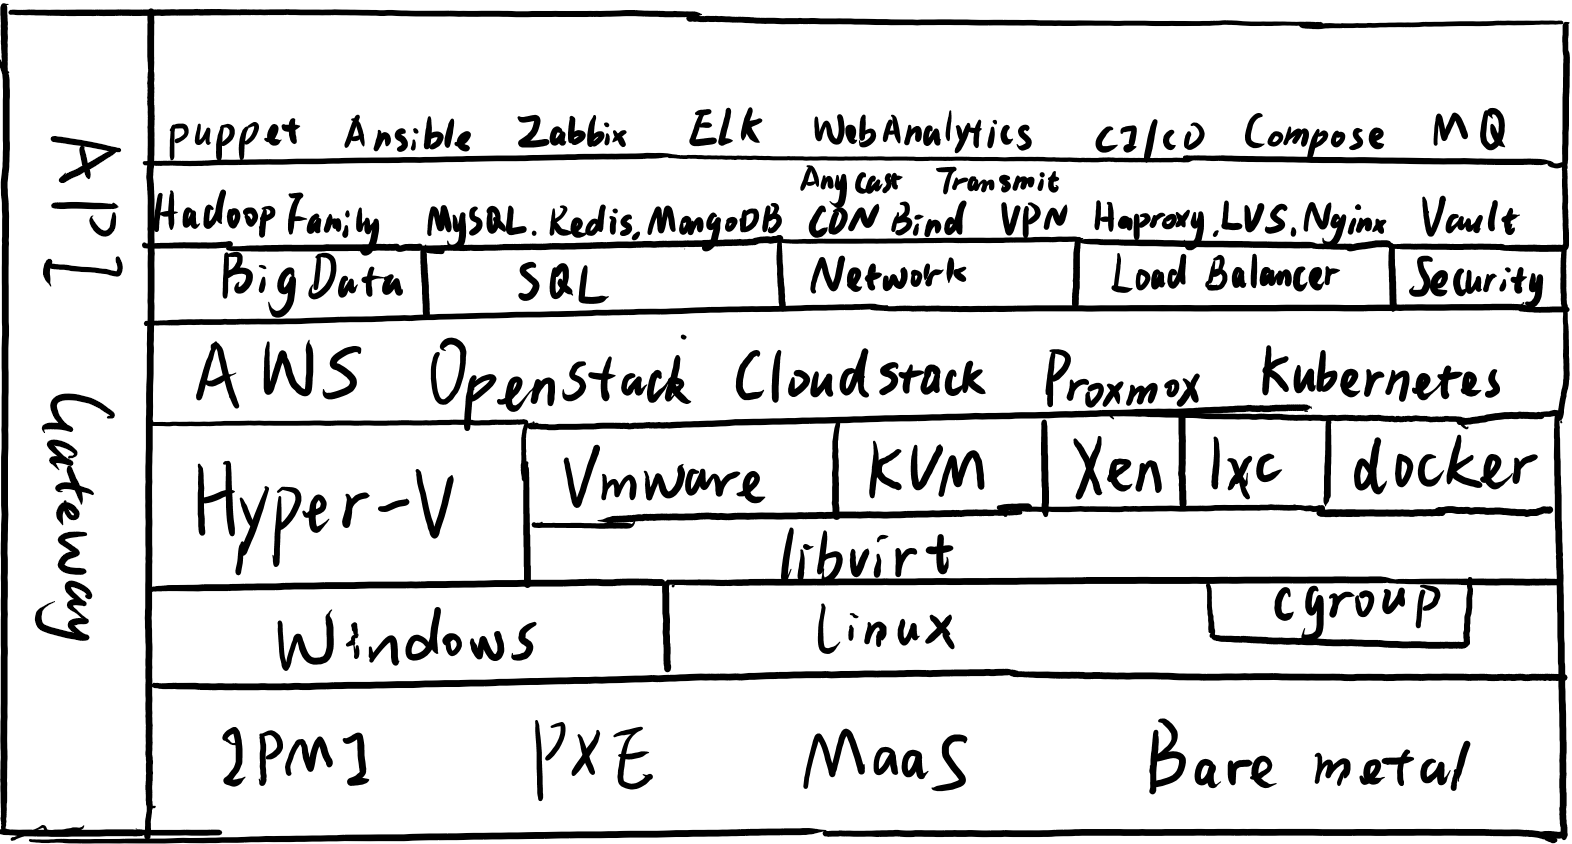 API Gateway
puppet Ansible Zabbix ELK WebAnalytics CI/CD Compose MQ
Anycast Transmit
Hadoop Family MySQL. Redis, MongoDB CDN Bind VPN Haproxy.LVS.Nginx Vault
Big Data SQL Network Load Balancer Security
AWS Openstack Cloudstack Proxmox Kubernetes
Hyper-V Vmware KVM Xen lxc docker
libvirt
Windows Linux cgroup
IPMI PXE MaaS Bare metal